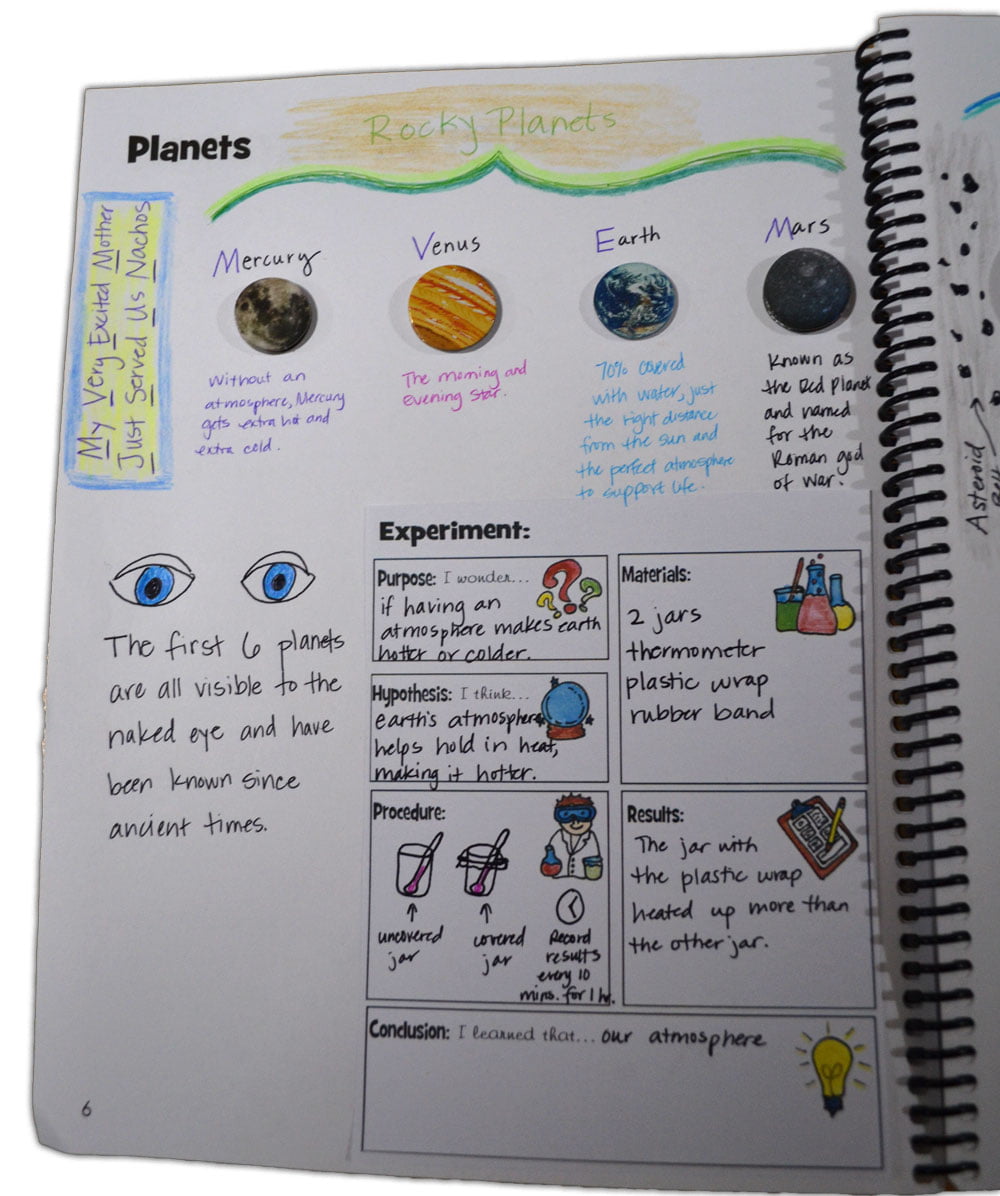 Planets
Rocky Planets
My Very Excited Mother
Just Served Us Nachos
Mercury
Without an
atmosphere, Mercury
gets extra hot and
extra cold.
Venus
The morning and
evening star.
Earth
70% covered
with water, just
the right distance
from the sun and
the perfect atmosphere
to support life.
Mars
Known as
the Red Planet
and named
for the
Roman god
of war.
The first 6 planets
are all visible to the
naked eye and have
been known since
ancient times.
Experiment:
Purpose: I wonder...
if having an
atmosphere makes earth
hotter or colder.
Materials:
2 jars
thermometer
plastic wrap
rubber band
Hypothesis: I think...
earth's atmosphere
helps hold in heat,
making it hotter.
Procedure:
uncovered
jar
covered
jar
Record
results
every 10
mins. for 1 hr.
Results:
The jar with
the plastic wrap
heated up more than
the other jar.
Conclusion: I learned that... our atmosphere
6
Asteroid